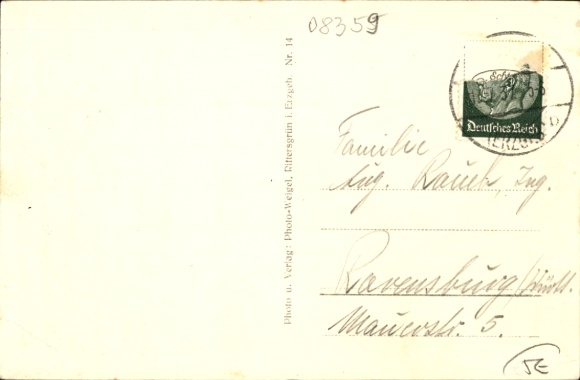 08359
Photo u. Verlag: Photo-Weigel, Rittersgrün i. Erzgeb. Nr. 14
Deutsches Reich
(ERZGEB)
Familie
Aug. Rauch, Ing.
Ravensburg/Württ.
Mauerstr. 5.